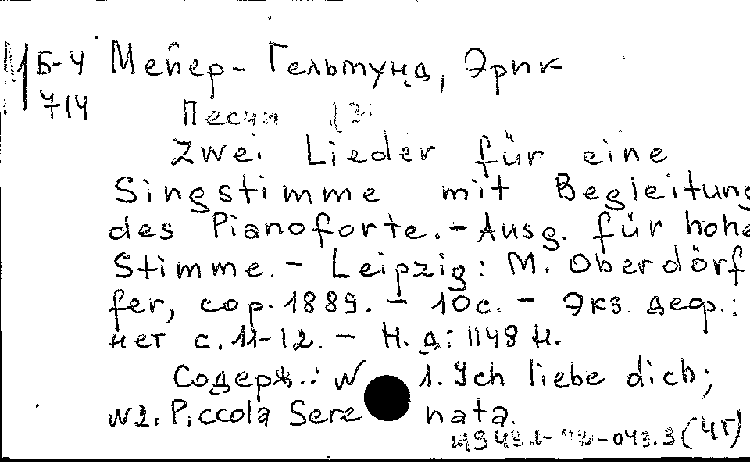 Б-4 Мейер-Гельмунд, Эрик
714 Песни
Zwei Lieder für eine
Singstimme mit Begleitung
des Pianoforte. - Ausg. für hohe
Stimme. - Leipzig: M. Oberdörf
fer, cop. 1889. - 10 с. - Экз. деф.:
нет с. 11-12. - Н. д: 1148 Н.
Содерж.: N 1. Ich liebe dich;
N2. Piccola Serenata.
(4г)